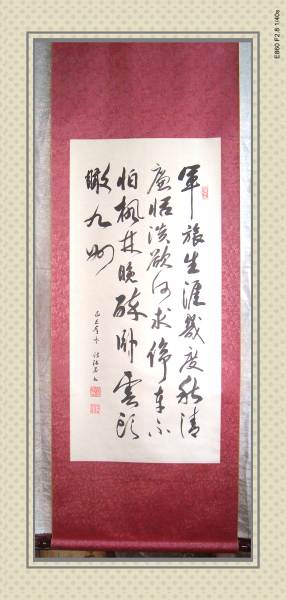 军旅生涯几度秋清
廉恬淡欲何求停车不
怕枫林晚醉卧云头
瞰九州
E860 F2.8 1/40s